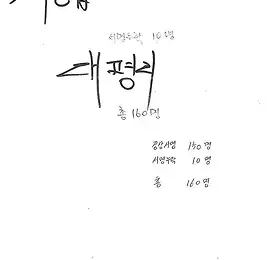 서명누락 10명
대평리
총 160명
공감서명 150명
서명누락 10명
총 160명